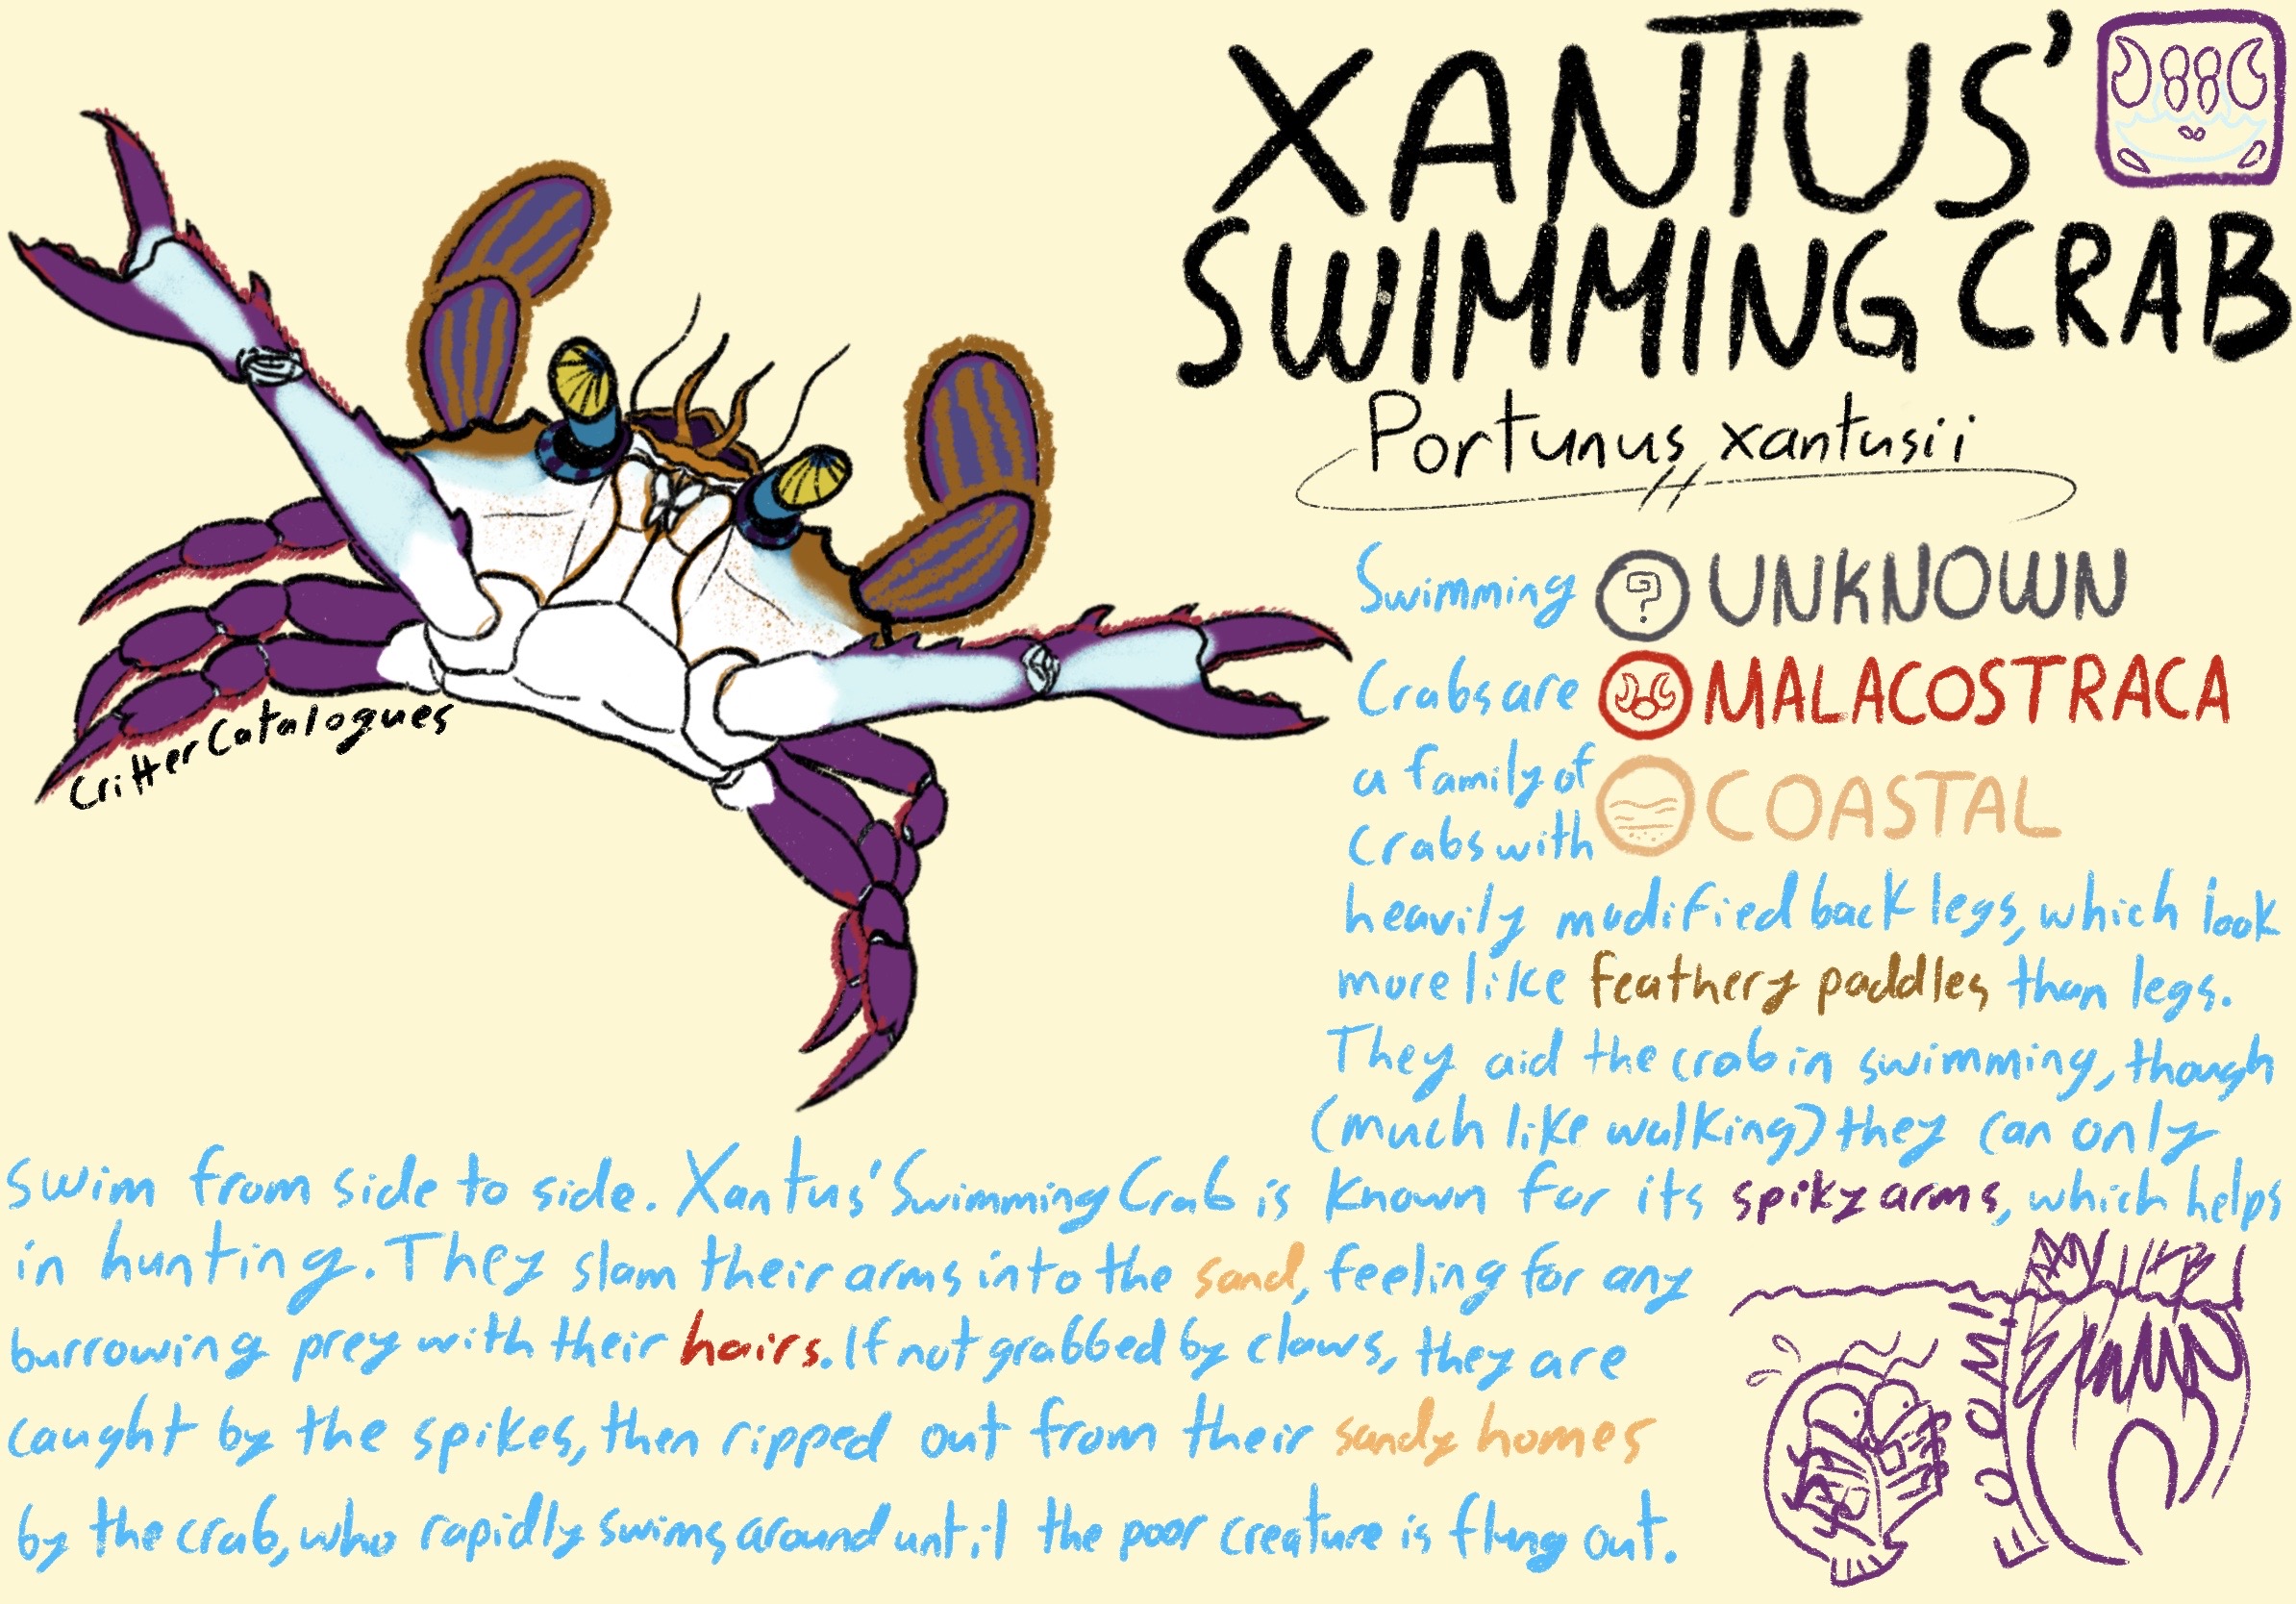 XANTUS'
SWIMMING CRAB
Portunus xantusii
Swimming
UNKNOWN
Crabs are
MALACOSTRACA
a family of
COASTAL
crabs with
heavily modified back legs, which look
more like feathery paddles than legs.
They aid the crab in swimming, though
(much like walking) they can only
swim from side to side. Xantus' Swimming Crab is known for its spiky arms, which helps
in hunting. They slam their arms into the sand, feeling for any
burrowing prey with their hairs. If not grabbed by claws, they are
caught by the spikes, then ripped out from their sandy homes
by the crab, who rapidly swims around until the poor creature is flung out.
CritterCatalogues